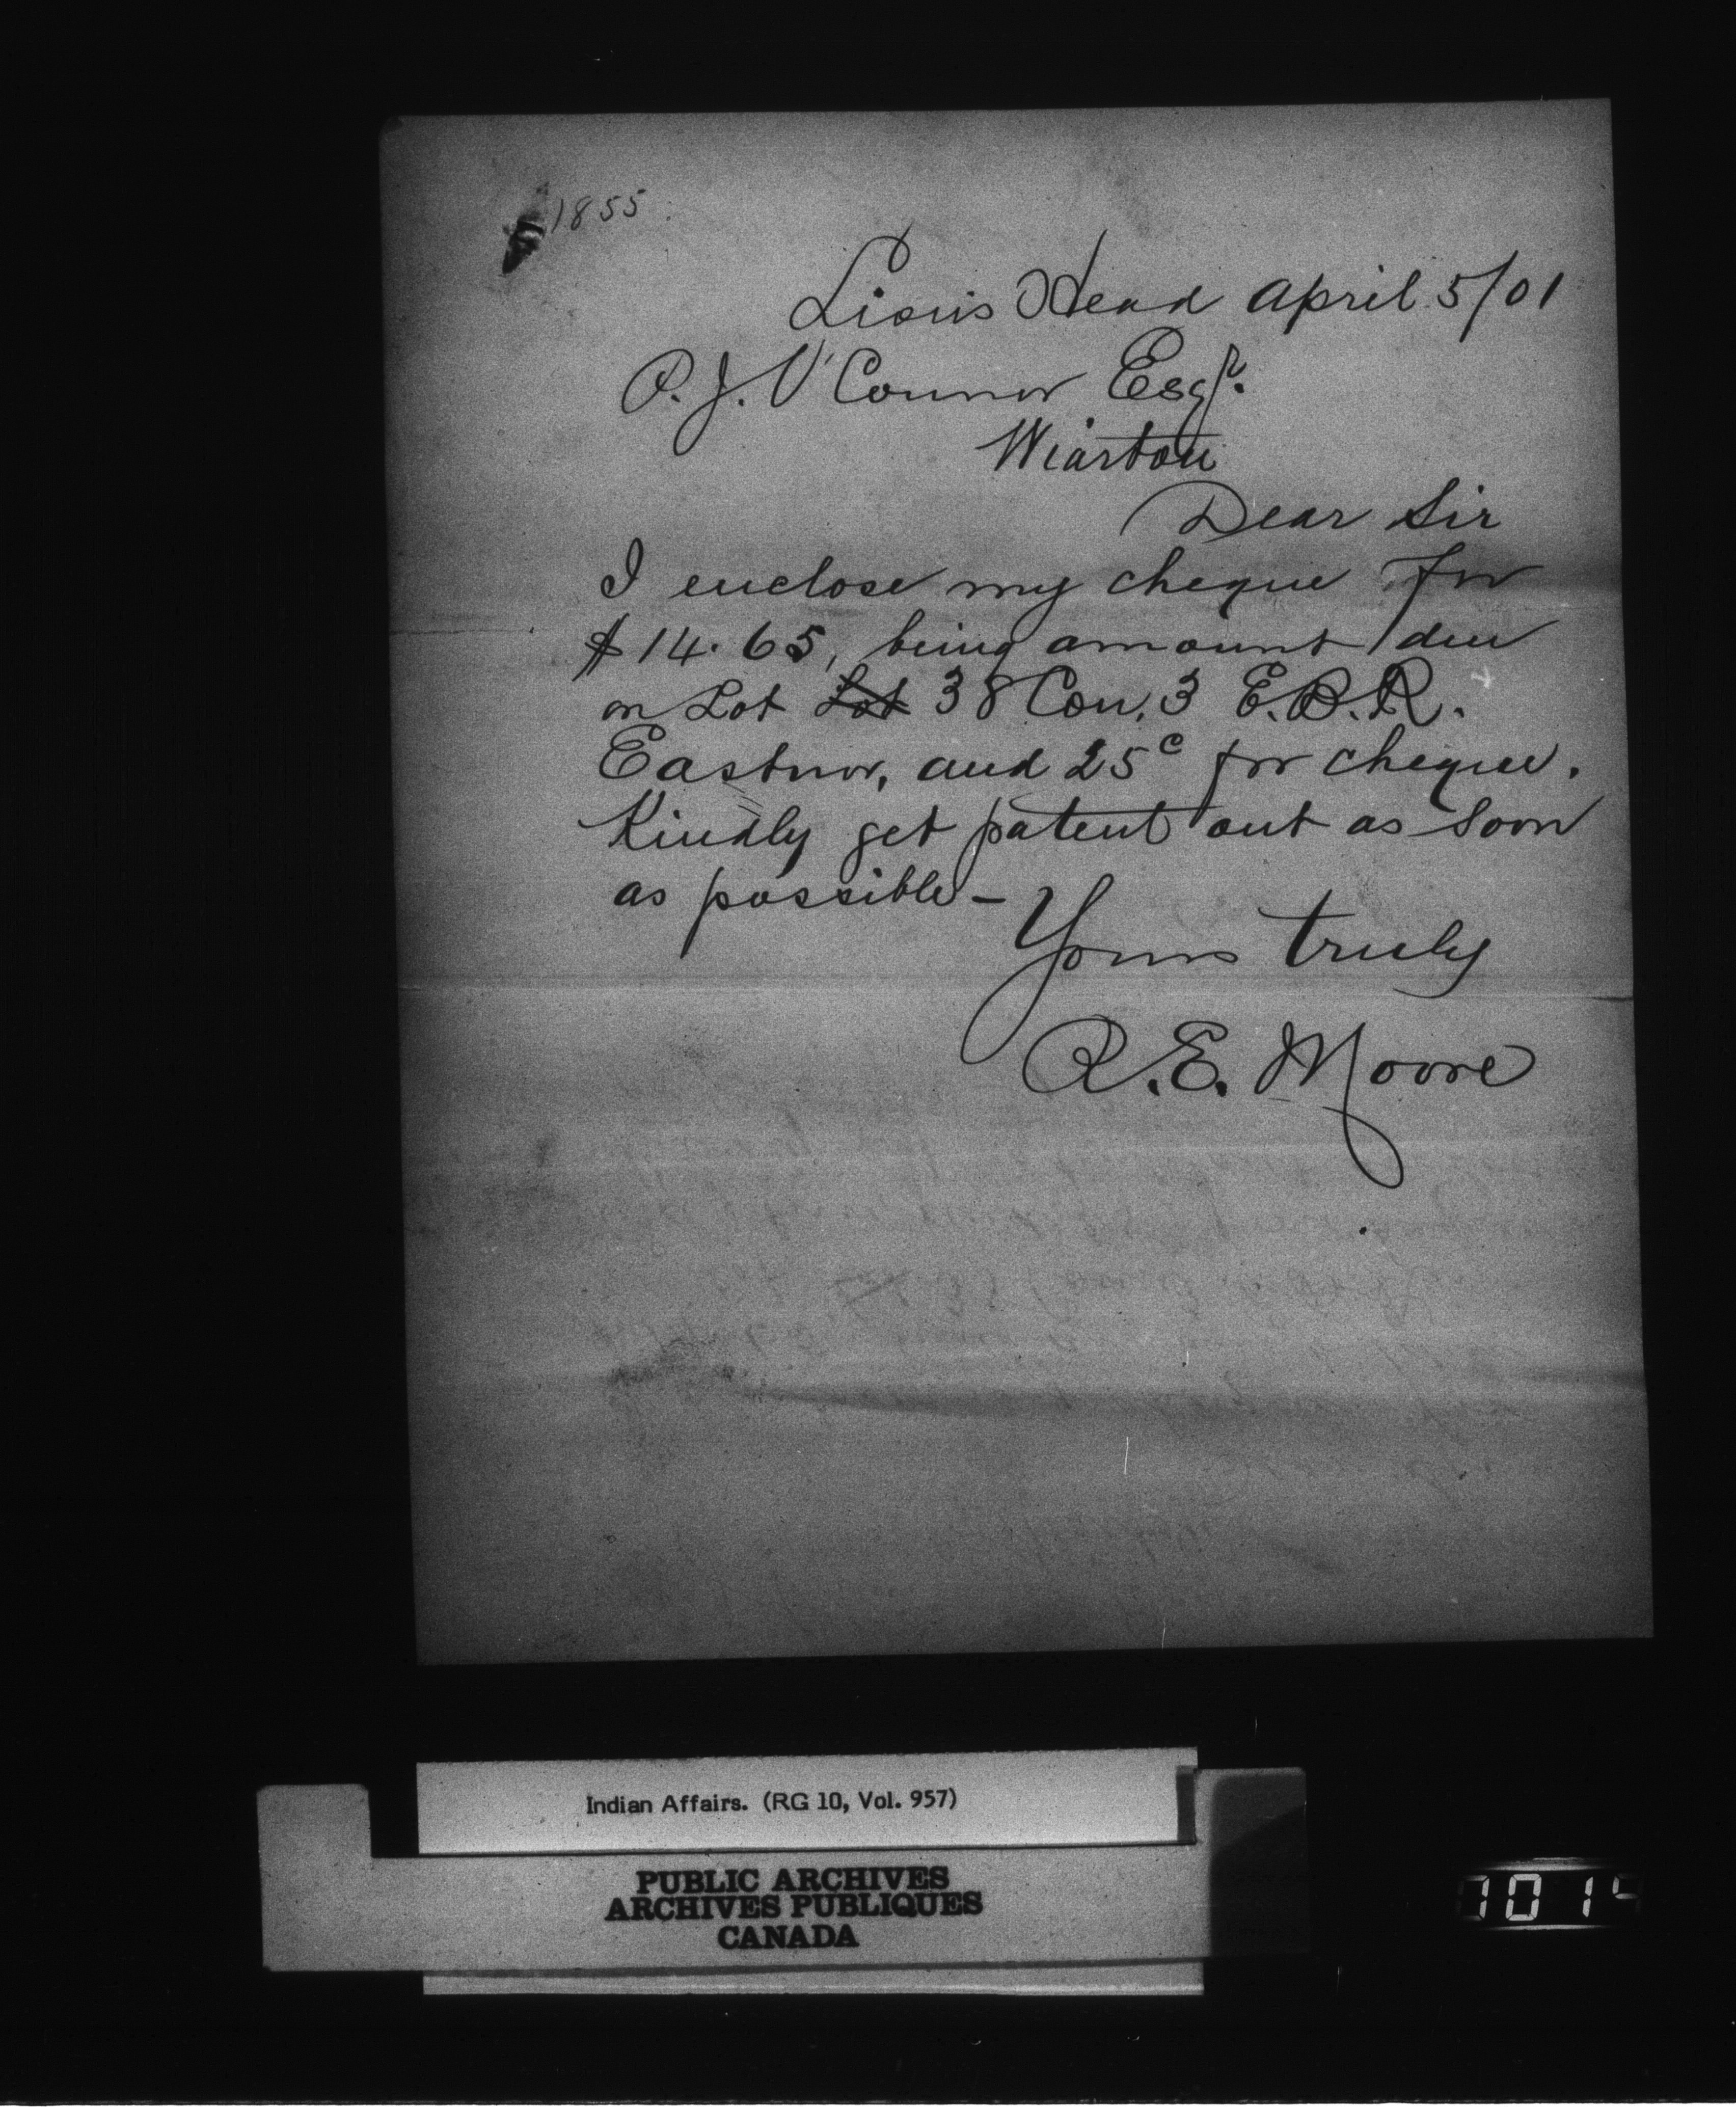 1855
Lion's Head April 5/01
P. J. O'Connor Esqr.
Wiarton
Dear Sir
I enclose my cheque for
$14.65, being amount due
on Lot Lot 38 Con. 3 E.B.R.
Eastnor, and 25c for cheque.
Kindly get patent out as soon
as possible -
Yours truly
R. E. Moore
Indian Affairs. (RG 10, Vol. 957)
PUBLIC ARCHIVES
ARCHIVES PUBLIQUES
CANADA